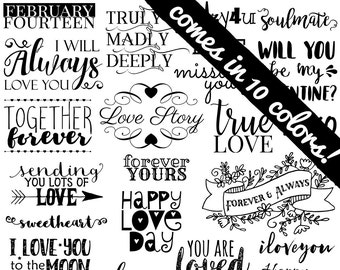 FEBRUARY
FOURTEEN
I WILL
Always
LOVE YOU
TOGETHER
forever
sending
YOU LOTS OF
LOVE
sweetheart
I LOVE YOU
to the MOON
TRULY
MADLY
DEEPLY
Love Story
forever
YOURS
HAPPY
LOVE
DAY
4u
soulmate
WILL YOU
be my
true
LOVE
FOREVER & ALWAYS
YOU ARE
loved
i love you
comes in 10 colors!